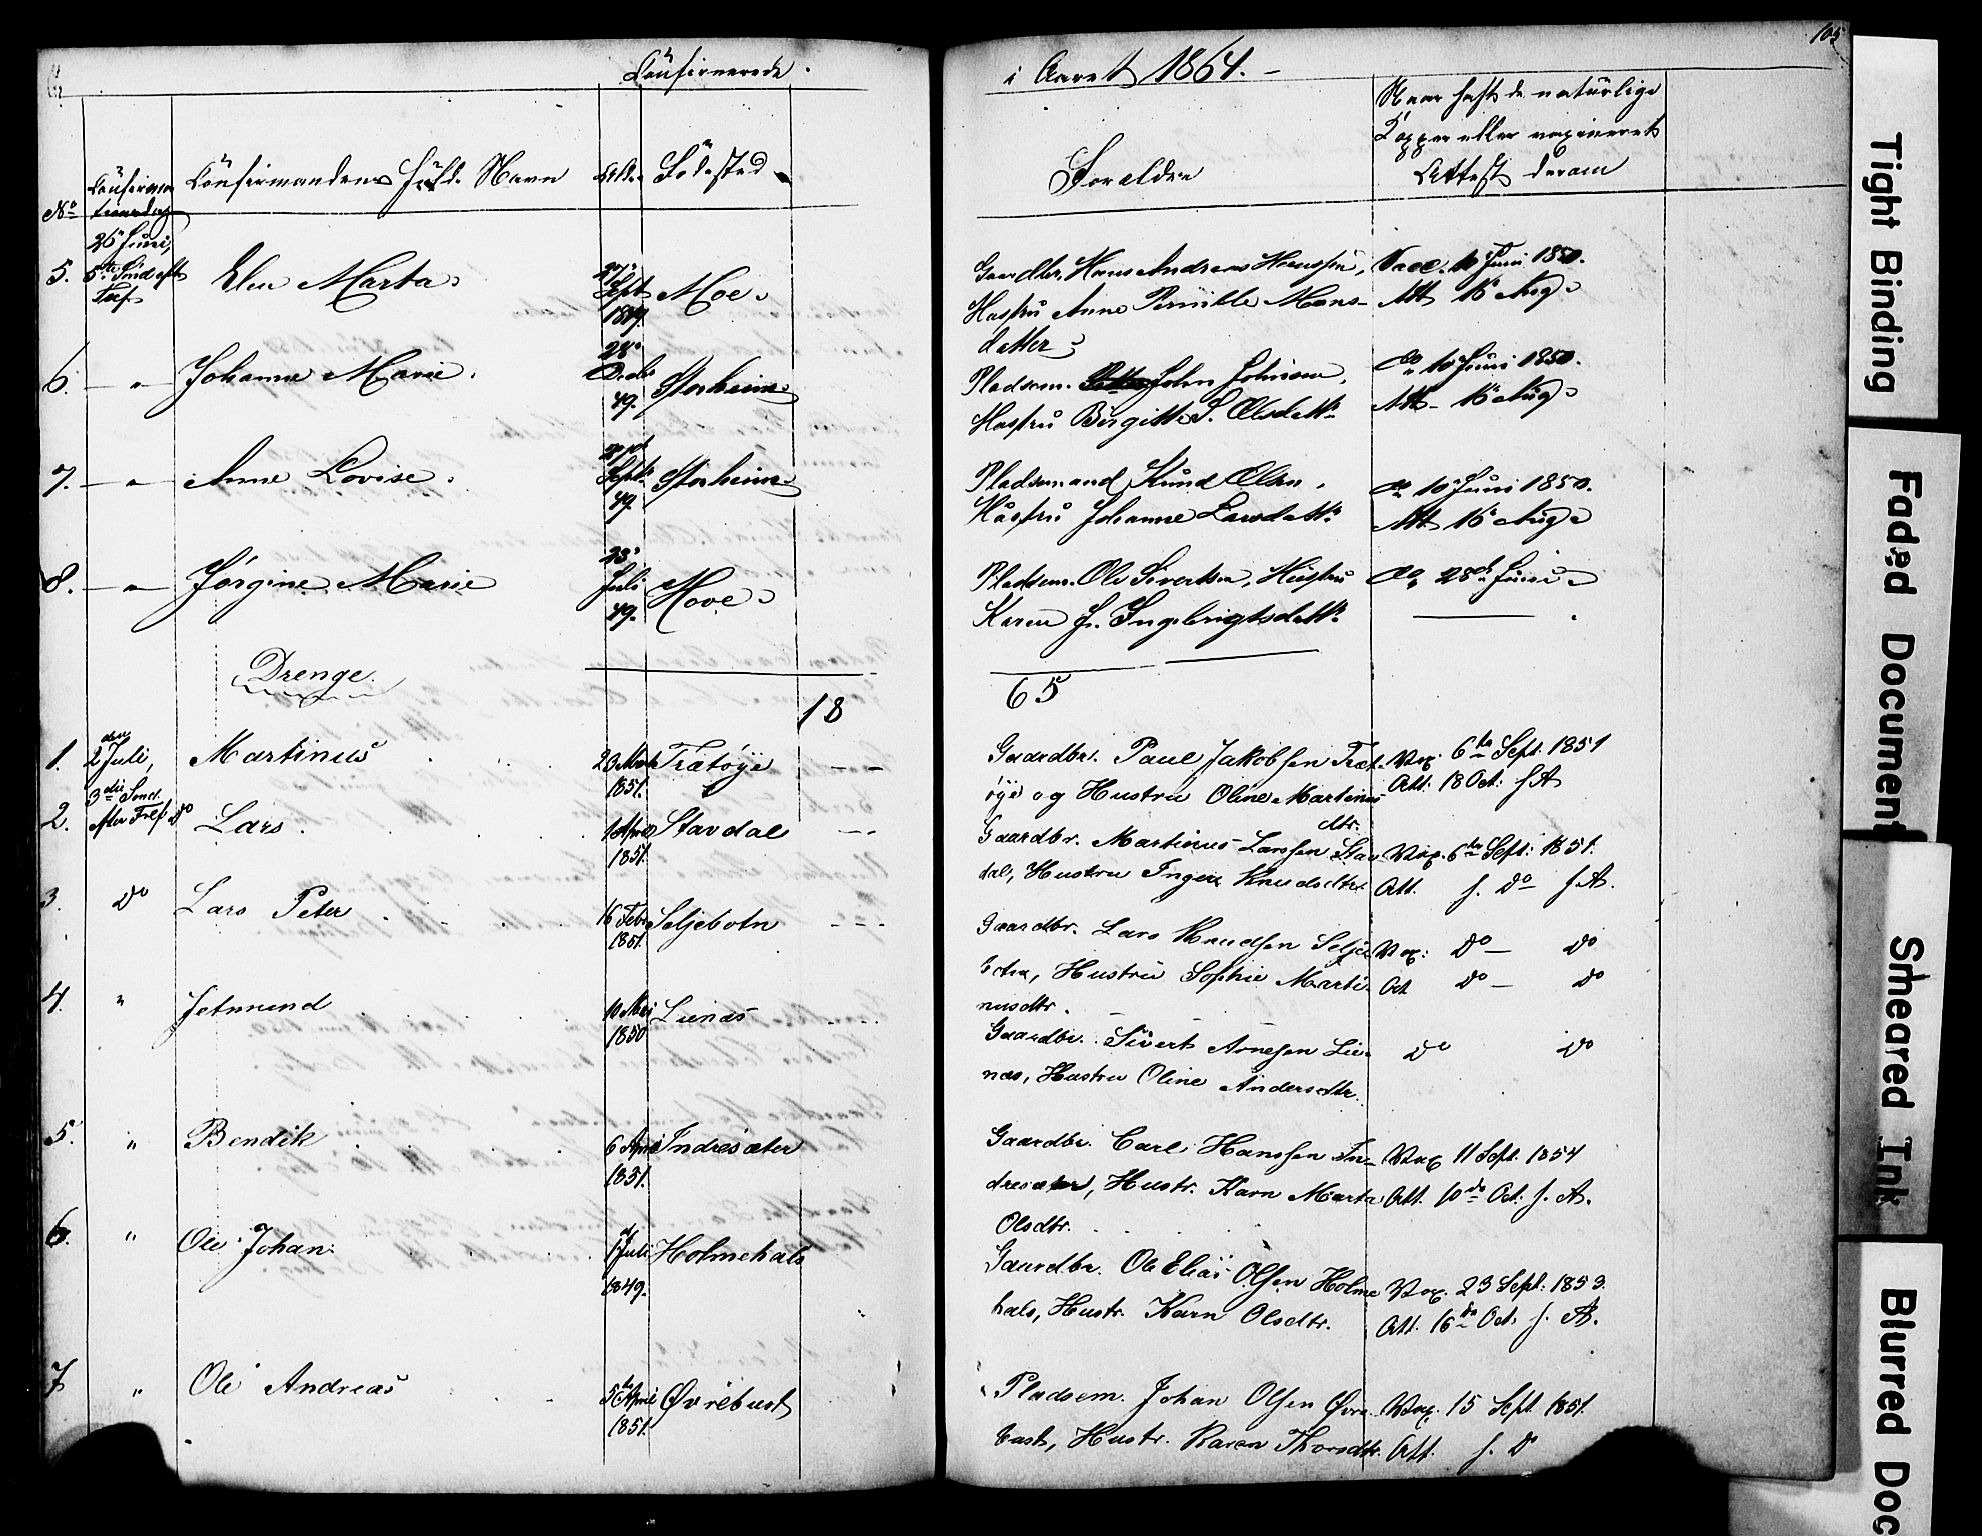 Confirmerede
i Aaret 1864.
105
No
Confirmationsdag
Confirmandens fulde Navn
Alder
Födested
Foraldre
Naar hafte de naturlige
Kopper eller vaxineret
Attest derom
26 Juni,
5. 5te Sönd eft Tref
Elen Marta
27de Sept 1849.
Moe
Gaardbr. Hans Andreas Hanssen,
Hustru Anne Pernille Mons-
datter
Vacc. 10 Juni 1850.
Att 16 Aug
6. — " — Johanne Marie.
28 Decbr 49.
Storheim
Pladsem. John Johnsen,
Hustru Birgitte S. Olsdatter
do 10 Juni 1850.
Att 16 Aug
7. — " — Anne Lovise.
Septbr 49.
Storheim
Pladsemand Knud Olsen,
Hustru Johanne Larsdatter
do 10 Juni 1850.
Att 16 Aug
8. — " — Jørgine Marie
23 Juli 49.
Move
Pladsem. Ole Sivertsen, Hustru
Karen J. Ingebrigtsdatter
do 28de Juni
Drenge.
18
65
1. den 2 Juli, 3die Sönd. efter Tref
Martinus
23 Marts 1851.
Trætøye
Gaardbr. Paul Jakobsen Træt-
øye og Hustru Oline Martinus
dtr.
Vax. 6te Sept. 1851
Att. 18 Oct. f A
2. do Lars
1 April 1851.
Stavdal
Gaardbr. Martinus Larssen Stav
dal, Hustru Inger Knudsdtr.
Vax. 6te Sept: 1851.
Att. f. do f A.
3. do Lars Peter
16 Febr 1851.
Seljebotn
Gaardbr. Lars Knudsen Selje
botn, Hustru Sophie Marti-
nusdtr.
Vax: do — do
Att do — do
4. " Jetmund
10 Mai 1850
Lienæs
Gaardbr. Sivert Arnesen Lie-
næs, Hustru Oline Andersdtr.
do do
5. " Bendik
6 April 1851.
Indresæter
Gaardbr. Carl Hanssen In-
dresæter, Hustr. Karn Marta
Olsdtr.
Vax 11 Sept. 1854
Att. 10de Oct: f. A.
6. " Ole Johan
1 Juli 1849.
Holmehals
Gaardbr. Ole Elias Olsen Holme
hals, Hustr. Karn Olsdtr.
Vax. 23 Sept: 1853.
Att. 16de Oct. f. A.
7 " Ole Andreas
5te April 1851.
Øvrebust
Pladsem. Johan Olsen Øvre
bust, Hustr. Karen Thorsdtr.
Vax. 15 Sept 1851.
Att. f. do
Tight Binding
Faded Document
Smeared Ink
Blurred Doc